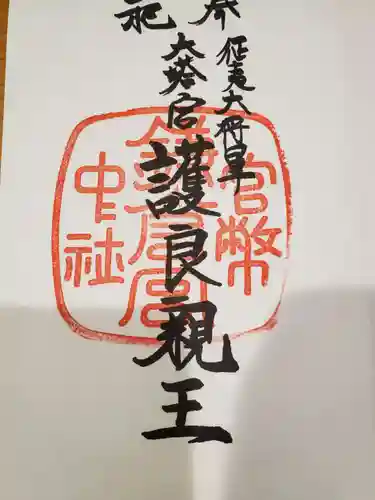 奉祀
征夷大将軍
大塔宮
護良親王
官幣
鎌倉宮
中社